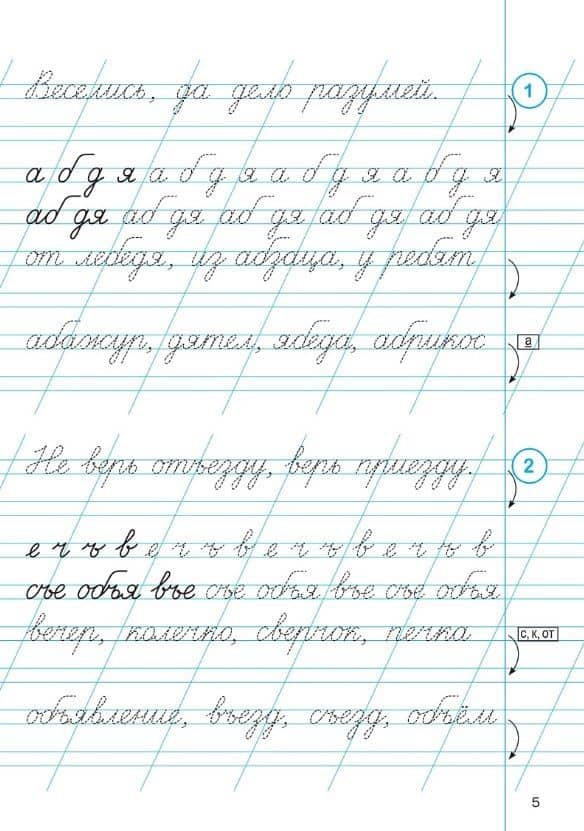 Веселись, да дело разумей.
1
а б д я а б д я а б д я а б д я
аб дя аб дя аб дя аб дя аб дя
от лебедя, из абзаца, у ребят
абажур, дятел, ябеда, абрикос
а
Не верь отъезду, верь приезду.
2
е ч ъ в е ч ъ в е ч ъ в е ч ъ в
съе объя въе съе объя въе съе объя
вечер, колечко, сверчок, печка
С, К, ОТ
объявление, въезд, съезд, объём
5